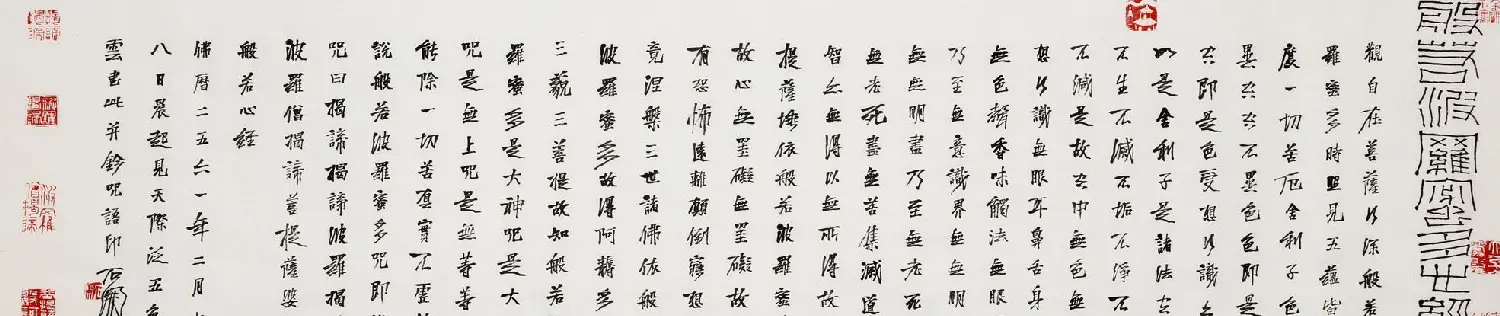 般若波羅蜜多心經
觀自在菩薩行深般若
羅蜜多時照見五蘊皆
度一切苦厄舍利子色
異空空不異色色即是
空即是色受想行識亦
如是舍利子是諸法空
不生不滅不垢不淨不
不減是故空中無色無
想行識無眼耳鼻舌身
無色聲香味觸法無眼
乃至無意識界無無明
無無明盡乃至無老死
無老死盡無苦集滅道
智亦無得以無所得故
提薩埵依般若波羅蜜
故心無罣礙無罣礙故
有恐怖遠離顛倒夢想
竟涅槃三世諸佛依般
波羅蜜多故得阿耨多
三藐三菩提故知般若
羅蜜多是大神咒是大
咒是無上咒是無等等
能除一切苦真實不虛
說般若波羅蜜多咒即
咒曰揭諦揭諦波羅揭
波羅僧揭諦菩提薩婆
般若心經
佛曆二五六一年二月
八日晨起見天際泛五色
雲書此并鈐咒語印